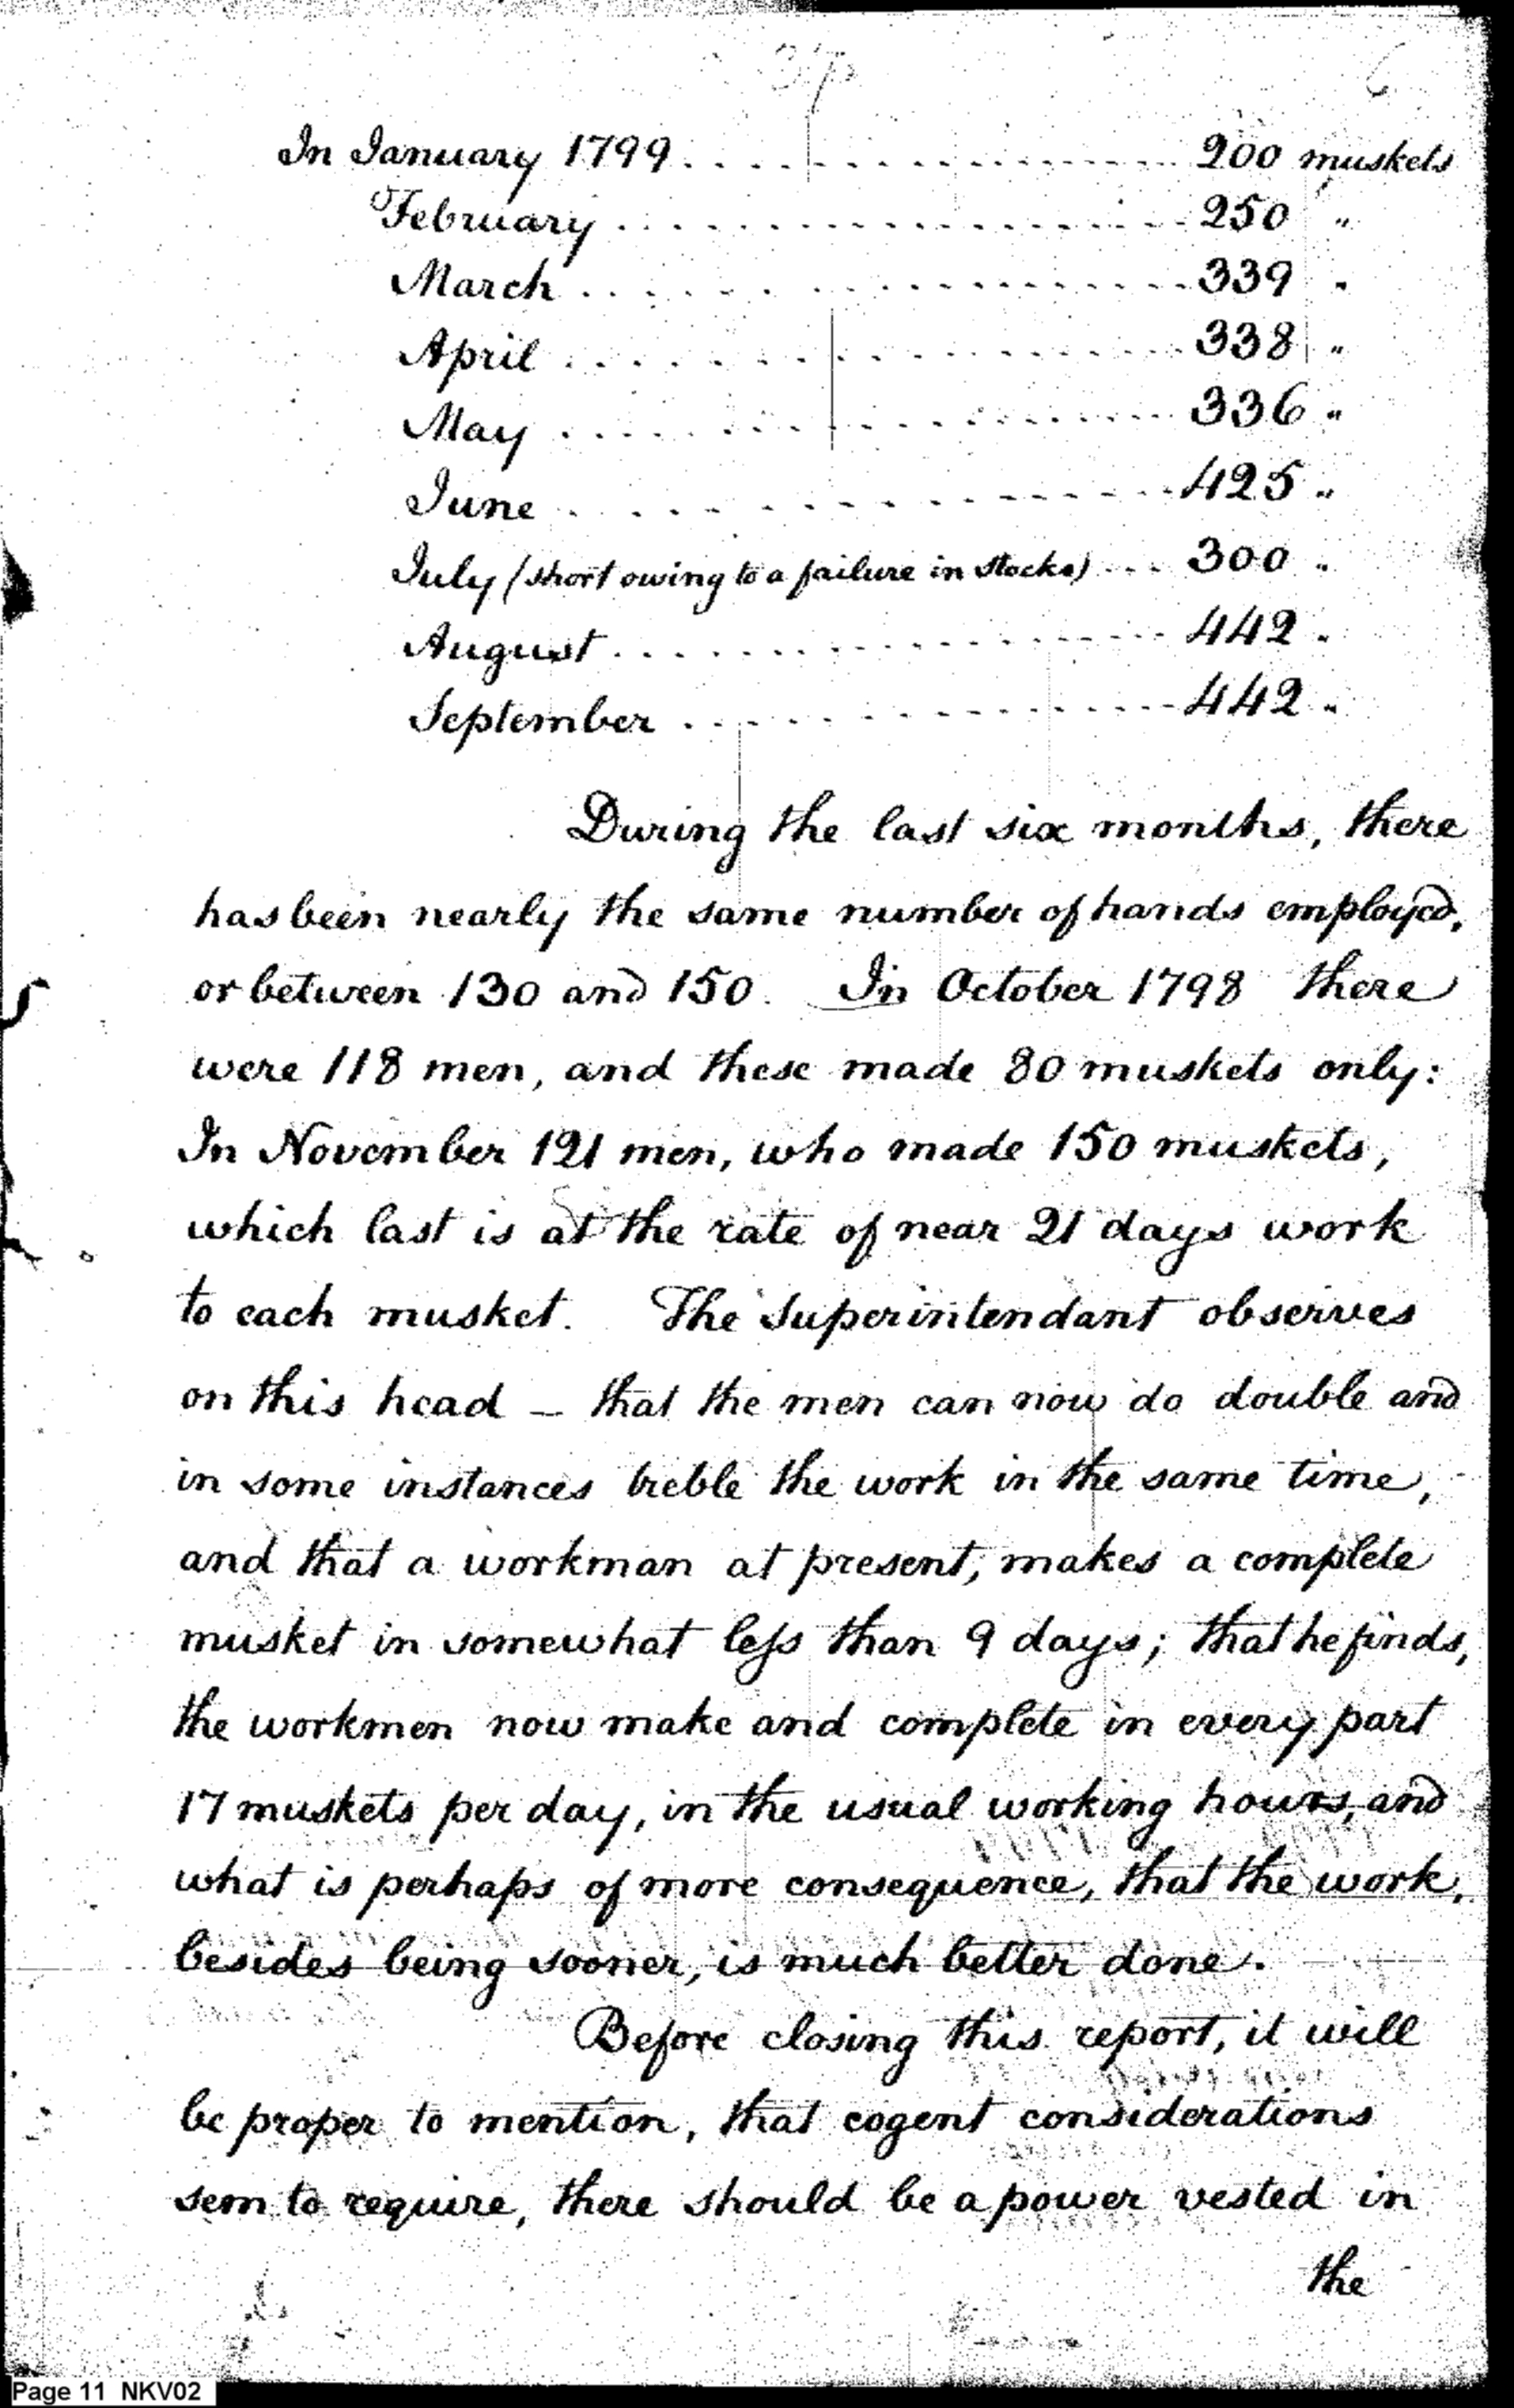 6
In January 1799 . . . . . . . . . . . . . . . . . . 200 muskets
February . . . . . . . . . . . . . . . . . . 250 "
March . . . . . . . . . . . . . . . . . . 339 "
April . . . . . . . . . . . . . . . . . . 338 "
May . . . . . . . . . . . . . . . . . . 336 "
June . . . . . . . . . . . . . . . . . . 425 "
July (short owing to a failure in stocks) . . . 300 "
August . . . . . . . . . . . . . . . . . . 442 "
September . . . . . . . . . . . . . . . . . . 442 "
During the last six months, there
has been nearly the same number of hands employed,
or between 130 and 150. In October 1798 there
were 118 men, and these made 80 muskets only:
In November 121 men, who made 150 muskets,
which last is at the rate of near 21 days work
to each musket. The Superintendant observes
on this head – that the men can now do double and
in some instances treble the work in the same time,
and that a workman at present, makes a complete
musket in somewhat less than 9 days; that he finds,
the workmen now make and complete in every part
17 muskets per day, in the usual working hours, and
what is perhaps of more consequence, that the work,
besides being sooner, is much better done.
Before closing this report, it will
be proper to mention, that cogent considerations
sem to require, there should be a power vested in
the
Page 11 NKV02